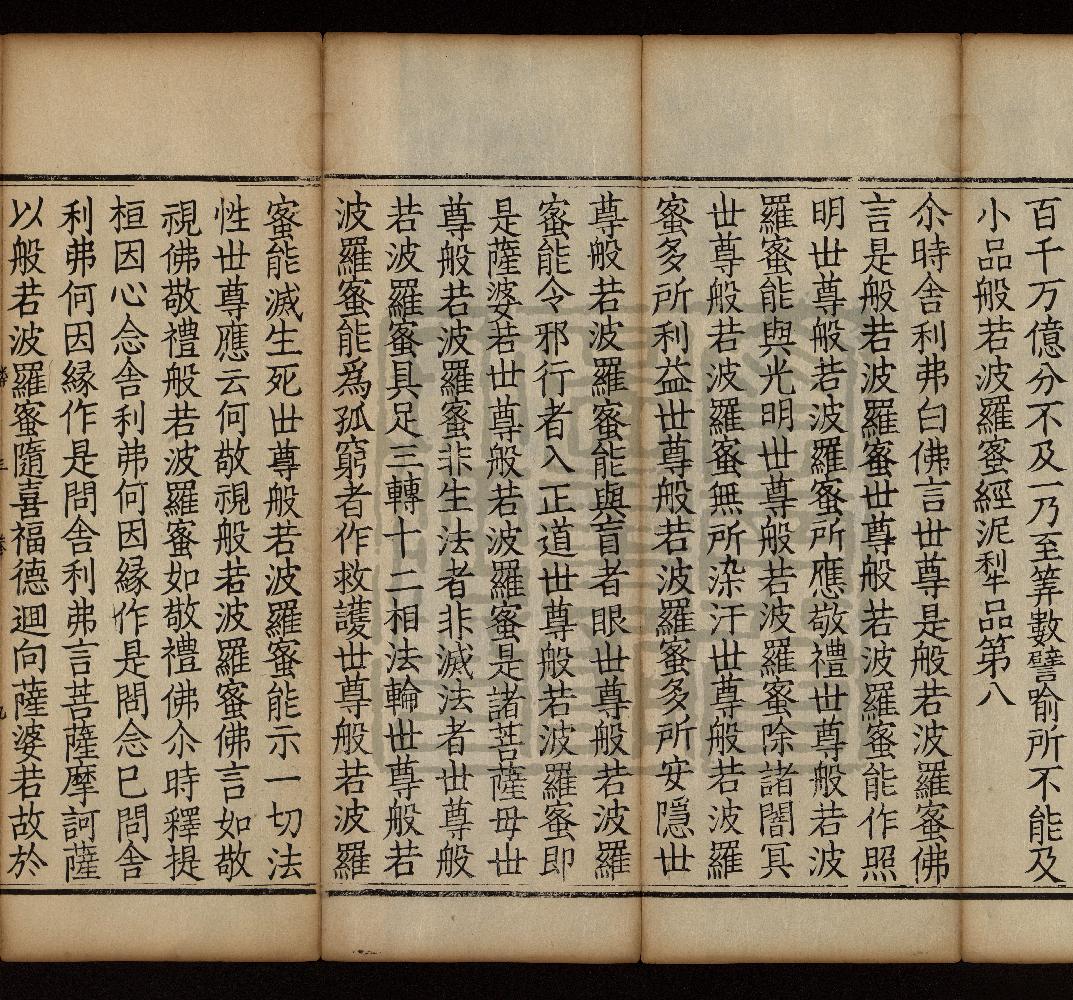 百千万億分不及一乃至筭數譬喻所不能及
小品般若波羅蜜經泥犁品第八
尒時舍利弗白佛言世尊是般若波羅蜜佛
言是般若波羅蜜世尊般若波羅蜜能作照
明世尊般若波羅蜜所應敬禮世尊般若波
羅蜜能與光明世尊般若波羅蜜除諸闇冥
世尊般若波羅蜜無所染汙世尊般若波羅
蜜多所利益世尊般若波羅蜜多所安隱世
尊般若波羅蜜能與盲者眼世尊般若波羅
蜜能令邪行者入正道世尊般若波羅蜜即
是薩婆若世尊般若波羅蜜是諸菩薩母世
尊般若波羅蜜非生法者非滅法者世尊般
若波羅蜜具足三轉十二相法輪世尊般若
波羅蜜能爲孤窮者作救護世尊般若波羅
蜜能滅生死世尊般若波羅蜜能示一切法
性世尊應云何敬視般若波羅蜜佛言如敬
視佛敬禮般若波羅蜜如敬禮佛尒時釋提
桓因心念舍利弗何因縁作是問念已問舍
利弗何因縁作是問舍利弗言菩薩摩訶薩
以般若波羅蜜隨喜福德迴向薩婆若故於